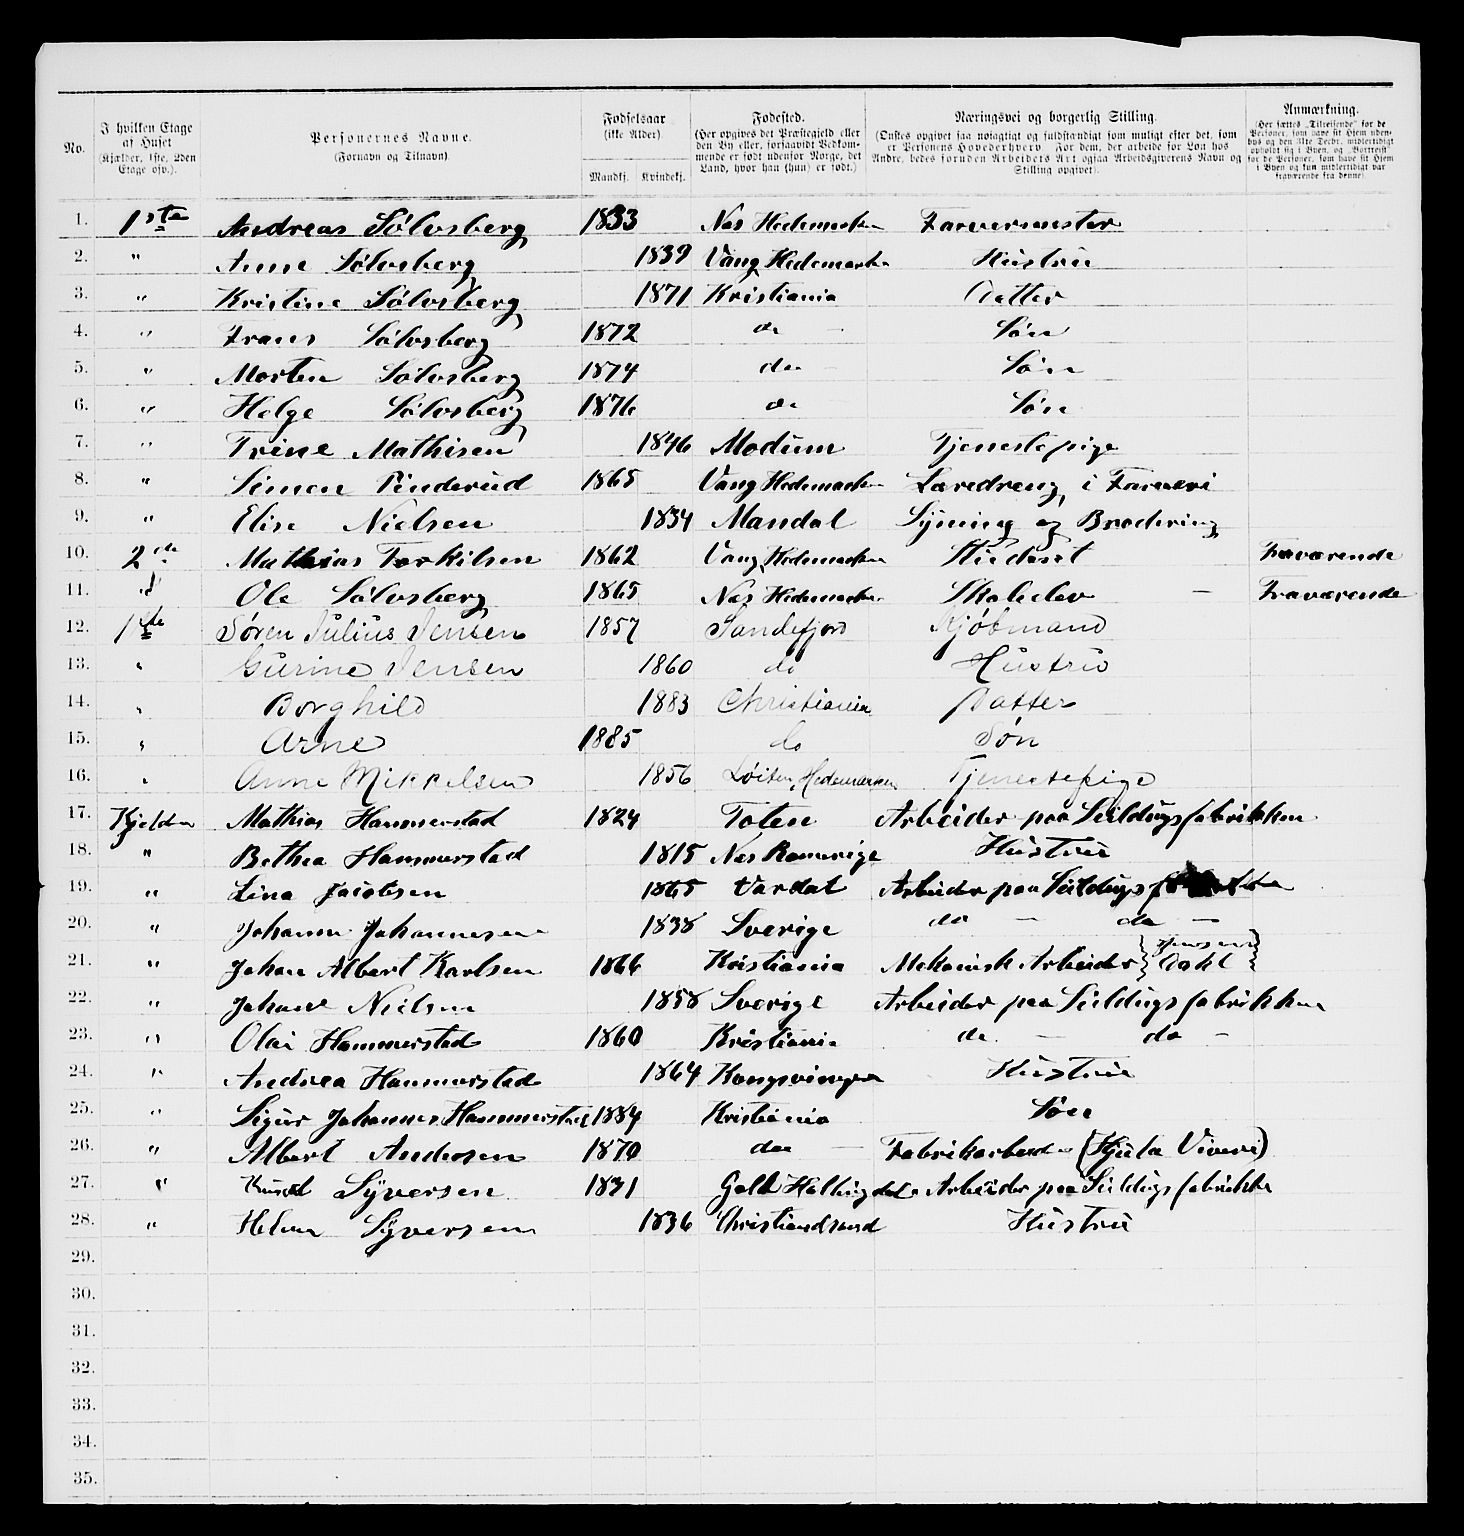 No.
I hvilken Etage af Huset (Kjælder, 1ste, 2den Etage osv.).
Personernes Navne. (Fornavn og Tilnavn).
Fødselsaar (ikke Alder). Mandkj. Kvindekj.
Fødested. (Her opgives det Præstegjeld eller den By eller, forsaavidt Vedkommende er født udenfor Norge, det Land, hvor han (hun) er født.)
Næringsvei og borgerlig Stilling. (Ønskes opgivet saa nøiagtigt og fuldstændigt som muligt efter det, som er Personens Hovederhverv. For dem, der arbeide for Løn hos Andre, bedes foruden Arbeidets Art ogsaa Arbeidsgiverens Navn og Stilling opgivet).
Anmærkning. (Her sættes „Tilreisende" for de Personer, som have sit Hjem udenbys og den 31te Decbr. midlertidigt opholdt sig i Byen, og „Bortreist" for de Personer, som have sit Hjem i Byen og kun midlertidigt var fraværende fra denne).
1. 1ste Andreas Sølvsberg 1833 Nes Hedemarken Farvermester
2. " Anne Sølvsberg 1839 Vang Hedemarken Hustru
3. " Kristine Sølvsberg 1871 Kristiania Datter
4. " Frans Sølvsberg 1872 do - Søn
5. " Morten Sølvsberg 1874 do - Søn
6. " Helge Sølvsberg 1876 do Søn
7. " Trine Mathisen 1846 Modum Tjenestepige
8. " Simen Finderud 1865 Vang Hedemarken Læredreng, i Farveri
9. " Elise Nielsen 1834 Mandal Syning og Brodering
10. 2de Mathias Torkilsen 1862 Vang, Hedemarken Student Fraværende
11. " Ole Sølvsberg 1865 Nes Hedemarken Skoleelev - Fraværende
12. 1ste Søren Julius Jensen 1857 Sandefjord Kjøbmand
13. " Gurine Jensen 1860 do Hustru
14. " Borghild 1883 Christiania Datter
15. " Arne 1885 do Søn
16. " Anne Mikkelsen 1856 Løiten, Hedemarken Tjenestepige
17. Kjelder Mathias Hammerstad 1824 Toten Arbeider paa Seildugsfabrikken
18. " Bethea Hammerstad 1815 Nes Romerige Hustru
19. " Lina Jacobsen 1865 Vardal Arbeider paa Seildugs
20. " Johanne Johannesen 1838 Sverige do - do -
21. " Johan Albert Karlsen 1866 Kristiania Mekanisk Arbeider { Dahl }
22. " Johane Nielsen 1858 Sverige Arbeider paa Seildugsfabrikken
23. " Olai Hammerstad 1860 Kristiania do - do -
24. " Andrea Hammerstad 1864 Kongsvinger Hustru
25. " Sigur Johannes Hammerstad 1884 Kristiania Søn
26. " Albert Andersen 1870 do - Fabrikarbeider (Hjula Væveri)
27. " Knud Syversen 1831 Goll Hallingdal Arbeider paa Seildugsfabrikken
28. " Helene Syversen 1836 Christiandsand Hustru
29.
30.
31.
32.
33.
34.
35.